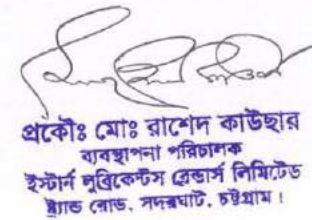 প্রকৌঃ মোঃ রাশেদ কাউছার
ব্যবস্থাপনা পরিচালক
ইস্টার্ন লুব্রিকেন্টস ব্লেন্ডার্স লিমিটেড
স্ট্র্যান্ড রোড, সদরঘাট, চট্টগ্রাম।